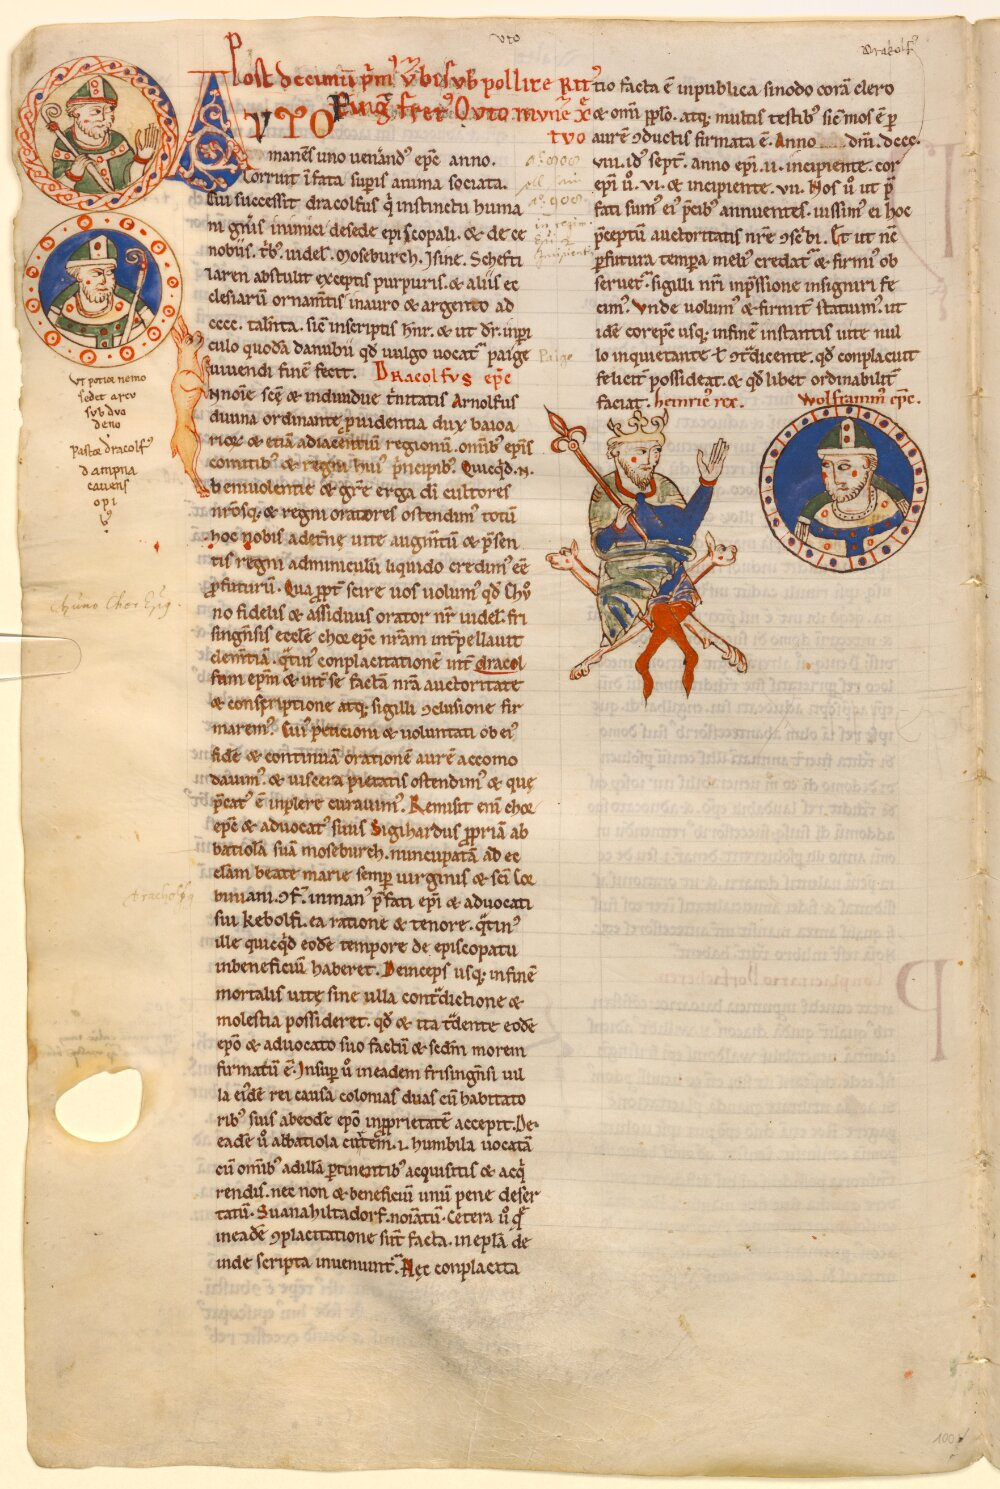 vto
Dracolf᷒
Post decimū p̄m᷒ vrbis sub pollice
VTO
tvo
manens uno uenand᷒ ep̄c anno.
Corruit īfata sup̄is anima sociata.
Cui successit dracolfus q̇ instinctu huma
ni gn̄is inimici desede episcopali. & de ce
nobiis. videl. Moseburch. Isine. Schefti
laren abstulit exceptis purpuris. & aliis ec
clesiarū ornam̄tis inauro & argento ad
cccc. taln̄ta. sic̄
culo quodā danubii qd̄ uulgo uocat᷒ paige
uiuendi finē fecit. Dracolfvs ep̄c
Nnoīe scē & indiuidue t̄nitatis Arnolfus
diuina ordinante p̄uidentia dux baioa
riox & etiā adiacentiū regionū. omīb᷒ ep̄is
comitib᷒ & regni hui᷒ p̄ncipib᷒. Quicq̇d. N.
beniuolentie & gr̄e erga di cultores
nr̄osq; & regni oratores ostendim᷒ totū
hoc nobis adet̄nę uite augm̄tū & p̄sen
tis regni adminiculū liquido credim᷒ eē
p̄futurū. Qua p̄pt̄ scire uos uolum᷒ qd̄ Chv̄
no fidelis & assiduus orator nr̄ videl. fri
singn̄sis eccle chor ep̄c nr̄am int̄pellauit
clem̄tiā. q̄tin᷒ conplacitationē int̄ dracol
fum ep̄m & int̄ se factā nr̄a auctoritate
& conscriptione atq; sigilli ɔclusione fir
marem᷒. Cui᷒ peticioni & uoluntati ob ei᷒
fidē & continuā orationē aurē accomo
dauim᷒. & uiscera pietatis ostendim᷒ & quę
p̄cat᷒ ē inplere curauim᷒. Remisit enī chor
ep̄c & aduocat᷒ suus Sigihardus p̄priā ab
batiolā suā moseburch. nuncupatā ad ec
clām beate marie semp̄ uirginis & scī Cor
biniani. ɔf᷒. inman᷒ p̄fati ep̄i & aduocati
sui kebolfi. ea ratione & tenore. q̄tin᷒
ille quicq̇d eodē tempore de episcopatu
inbeneficiū haberet. Deinceps usq; infinē
mortalis uitę sine ulla cont̄dictione &
molestia possideret. qd̄ & ita t̄dente eodē
ep̄o & aduocato suo factū & sedm̄ morem
firmatū ē. Insup̄ ů ineadem frisingn̄si uil
la eidē rei causa colonias duas cū habitato
rib᷒ suis abeodē ep̄o inp̄prietatē accepit. De
eadē ů abbatiola humbila uocatā
cū omīb᷒ adillā p̄tinentib᷒ acquisitis & acq̇
rendis. nec non & beneficiū unū pene deser
tatū. Suanahiltadorf. noīatū. Cetera ů q̄
ineadē ɔplacitatione sūt facta. in eplā de
inde scripta inueniunt᷒. Nęc conplacita
tio facta ē inpublica sinodo corā clero
& omī pplo. atq; multis testib᷒ sic̄ mos ē p̄
aurē ɔductis firmata ē. Anno dn̄i. dccc.
viii. id᷒ sept̄. anno ep̄i. ii. incipiente. cor
ep̄i ů. vi. & incipiente. vii. Nos ů ut p̄
fati sum᷒ ei᷒ p̄cib᷒ annuentes. iussim᷒ ei hoc
p̄ceptū auctoritatis nr̄e ɔsc̄bi. Et ut nē
p̄futura tempora meli᷒ credat᷒ & firmi᷒ ob
seruet᷒. sigilli nr̄i inp̄ssione insigniri fe
cim᷒. Vnde uolum᷒ & firmit̄ statuim᷒. ut
idē corepc usq; infinē instantis uite nul
lo inquietante ł ɔt̄dicente. qd̄ conplacuit
felicit̄ possideat. & qd̄ libet ordinabilit̄
faciat. heinric᷒ rex. Wolframm᷒ ep̄c.
Vt potior nemo
sedet arcv
svb dvo
deno
Pastor dracolf᷒
dampna
cavens
opi
Paige
100